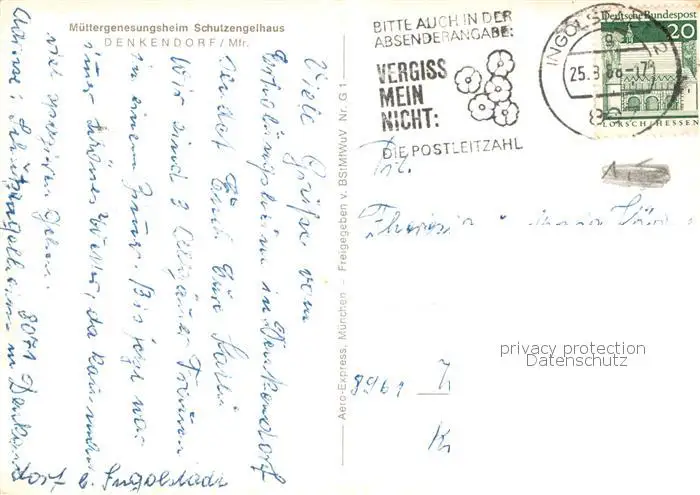 Müttergenesungsheim Schutzengelhaus
DENKENDORF/Mfr.
Viele Grüße vom
Erholungsheim in Denkendorf
sendet Euch Eure
Wir sind 3 Allgäuer Frauen
in einem Zimmer. Bis jetzt war
immer schönes Wetter, da kann man
viel spazieren gehen.
Adresse: Schutzengelheim in Denken
8071
dorf b. Ingolstadt
Aero-Express, München — Freigegeben v. BStMfWuV Nr. G 1
BITTE AUCH IN DER
ABSENDERANGABE:
VERGISS
MEIN
NICHT:
DIE POSTLEITZAHL
INGOLSTADT 2
25.8.66
Deutsche Bundespost
20
LORSCH/HESSEN
Frl.
Theresia
8961
privacy protection
Datenschutz